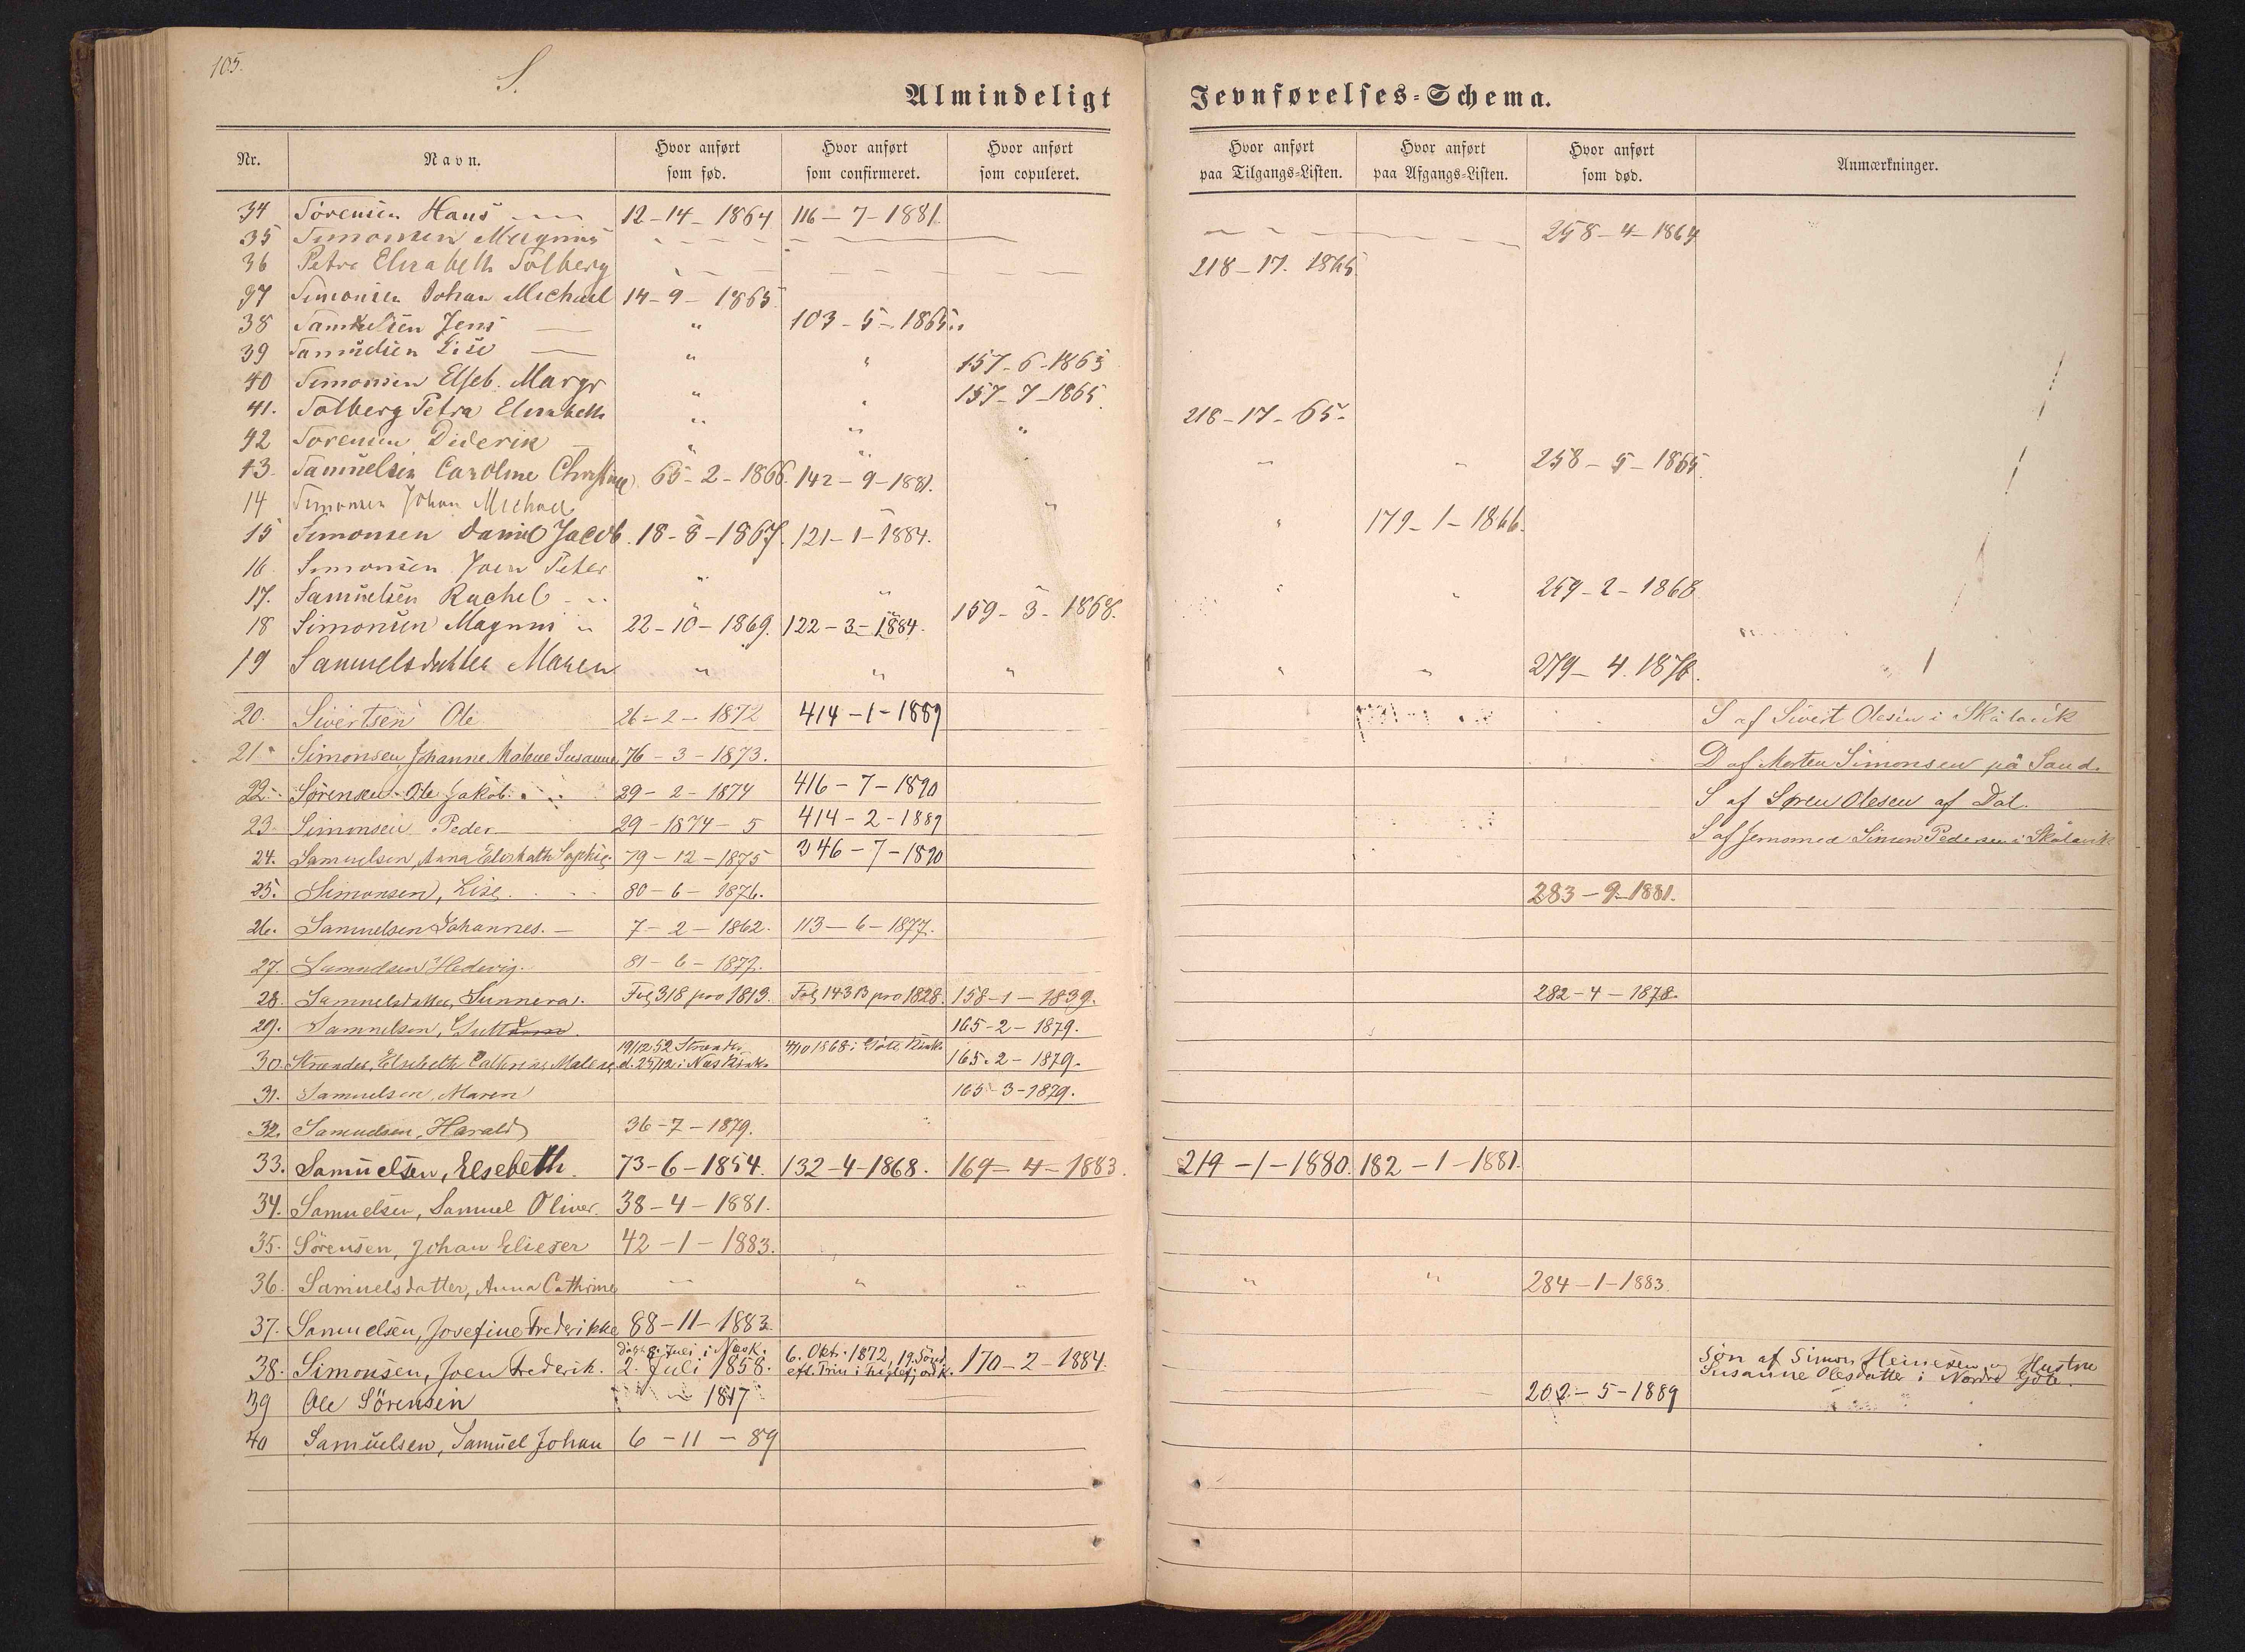 105.
S.
Almindeligt Jevnførelses-Schema.
Nr. Navn. Hvor anført som fød. Hvor anført som confirmeret. Hvor anført som copuleret. Hvor anført paa Tilgangs-Listen. Hvor anført paa Afgangs-Listen. Hvor anført som død. Anmærkninger.
34 Sörensen Hans 12-14-1864 116-7-1881.
35 Simonsen Magnus 258-4-1864
36 Petra Elisabeth Solberg 218-17. 1865.
37 Simonsen Johan Michael 14-9-1865.
38 Samuelsen Jens " 103-5-1865.
39 Samuelsen Lise " " 157-6-1865
40 Simonsen Elseb. Margr " " 157-7-1865.
41. Solberg Petra Elisabeth " " " 218-17-65.
42 Sorensen Diderik " " " " " 258-5-1865
43. Samuelsen Caroline Christine 65-2-1866. 142-9-1881.
14 Simonsen Johan Michael " " 179-1-1866.
15 Simonsen Daniel Jacob. 18-8-1867. 121-1-1884.
16. Simonsen Joen Peter " " " " 259-2-1868
17. Samuelsen Rachel " " 159-3-1868.
18 Simonsen Magnus 22-10-1869. 122-3-1884.
19 Samuelsdatter Maren " " " " " 279-4.1870.
20. Sivertsen Ole 26-2-1872 414-1-1889 S af Sivert Olesen i Skålavik
21 Simonsen, Johanne Malene Susanne 76-3-1873. D af Morten Simonsen på Sand.
22. Sørensen Ole Jakob. 29-2-1874 416-7-1890 S af Søren Olesen af Dal.
23. Simonsen Peder 29-1874-5 414-2-1889 S af Simon Pedersen i Skålavik
24. Samuelsen, Anna Elisabath Sophie. 79-12-1875 346-7-1890
25. Simonsen, Lise. 80-6-1876. 283-9-1881.
26. Samuelsen Johannes. 7-2-1862. 113-6-1877.
27. Samuelsen Hedevig. 81-6-1877.
28. Samuelsdatter, Sunneva. Fol 318 pro 1813. Fol 143 B pro 1828. 158-1-1839. 282-4-1878.
29. Samuelsen, 165-2-1879.
30. Strander, Elsebeth Cathrine Malene 19/12 52 Strander d. 25/12 i Næs Kirke 4/10 1868 i Göte Kirke 165.2-1879.
31. Samuelsen, Maren 165-3-1879.
32. Samuelsen, Harald 36-7-1879.
33. Samuelsen, Elsebeth. 73-6-1854. 132-4-1868. 169-4-1883. 219-1-1880. 182-1-1881.
34. Samuelsen, Samuel Oliver. 38-4-1881.
35. Sörensen, Johan Elieser 42-1-1883.
36. Samuelsdatter, Anna Cathrine " " " " " 284-1-1883.
37. Samuelsen, Josefine Frederikke 88-11-1883.
38. Simonsen, Joen Frederik. 2. Juli 1858. 6. Okt. 1872, 19. Sönd. eft. Trin i 170-2-1884. Søn af Simon Heinesen og Hustru Susanne Olesdatter i Nordre Göte.
39 Ole Sörensen 1817 202-5-1889
40 Samuelsen, Samuel Johan 6-11-89